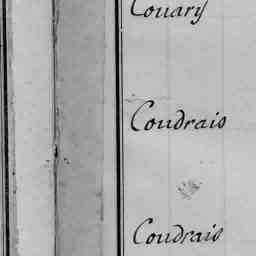 Couary
Coudrais
Coudrais